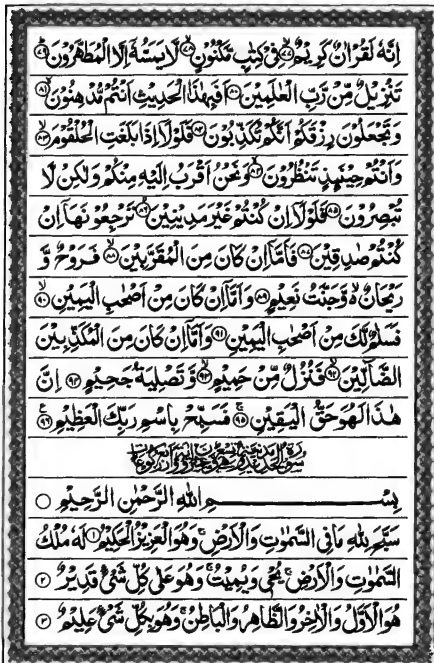 اِنَّهٗ لَقُرْاٰنٌ كَرِیْمٌ ﴿۷۷﴾ فِیْ كِتٰبٍ مَّكْنُوْنٍ ﴿۷۸﴾ لَّا یَمَسُّهٗۤ اِلَّا الْمُطَهَّرُوْنَ ﴿۷۹﴾
تَنْزِیْلٌ مِّنْ رَّبِّ الْعٰلَمِیْنَ ﴿۸۰﴾ اَفَبِهٰذَا الْحَدِیْثِ اَنْتُمْ مُّدْهِنُوْنَ ﴿۸۱﴾
وَ تَجْعَلُوْنَ رِزْقَكُمْ اَنَّكُمْ تُكَذِّبُوْنَ ﴿۸۲﴾ فَلَوْلَاۤ اِذَا بَلَغَتِ الْحُلْقُوْمَ ﴿۸۳﴾
وَ اَنْتُمْ حِیْنَىِٕذٍ تَنْظُرُوْنَ ﴿۸۴﴾ وَ نَحْنُ اَقْرَبُ اِلَیْهِ مِنْكُمْ وَ لٰكِنْ لَّا
تُبْصِرُوْنَ ﴿۸۵﴾ فَلَوْلَاۤ اِنْ كُنْتُمْ غَیْرَ مَدِیْنِیْنَ ﴿۸۶﴾ تَرْجِعُوْنَهَاۤ اِنْ
كُنْتُمْ صٰدِقِیْنَ ﴿۸۷﴾ فَاَمَّاۤ اِنْ كَانَ مِنَ الْمُقَرَّبِیْنَ ﴿۸۸﴾ فَرَوْحٌ وَّ
رَیْحَانٌ ۙ وَّ جَنَّتُ نَعِیْمٍ ﴿۸۹﴾ وَ اَمَّاۤ اِنْ كَانَ مِنْ اَصْحٰبِ الْیَمِیْنِ ﴿۹۰﴾
فَسَلٰمٌ لَّكَ مِنْ اَصْحٰبِ الْیَمِیْنِ ﴿۹۱﴾ وَ اَمَّاۤ اِنْ كَانَ مِنَ الْمُكَذِّبِیْنَ
الضَّآلِّیْنَ ﴿۹۲﴾ فَنُزُلٌ مِّنْ حَمِیْمٍ ﴿۹۳﴾ وَّ تَصْلِیَةُ جَحِیْمٍ ﴿۹۴﴾ اِنَّ
هٰذَا لَهُوَ حَقُّ الْیَقِیْنِ ﴿۹۵﴾ فَسَبِّحْ بِاسْمِ رَبِّكَ الْعَظِیْمِ ﴿۹۶﴾
سورة الحديد مدنية
بِسْمِ اللّٰهِ الرَّحْمٰنِ الرَّحِیْمِ
سَبَّحَ لِلّٰهِ مَا فِی السَّمٰوٰتِ وَ الْاَرْضِ ۚ وَ هُوَ الْعَزِیْزُ الْحَكِیْمُ ﴿۱﴾ لَهٗ مُلْكُ
السَّمٰوٰتِ وَ الْاَرْضِ ۚ یُحْیٖ وَ یُمِیْتُ ۚ وَ هُوَ عَلٰى كُلِّ شَیْءٍ قَدِیْرٌ ﴿۲﴾
هُوَ الْاَوَّلُ وَ الْاٰخِرُ وَ الظَّاهِرُ وَ الْبَاطِنُ ۚ وَ هُوَ بِكُلِّ شَیْءٍ عَلِیْمٌ ﴿۳﴾